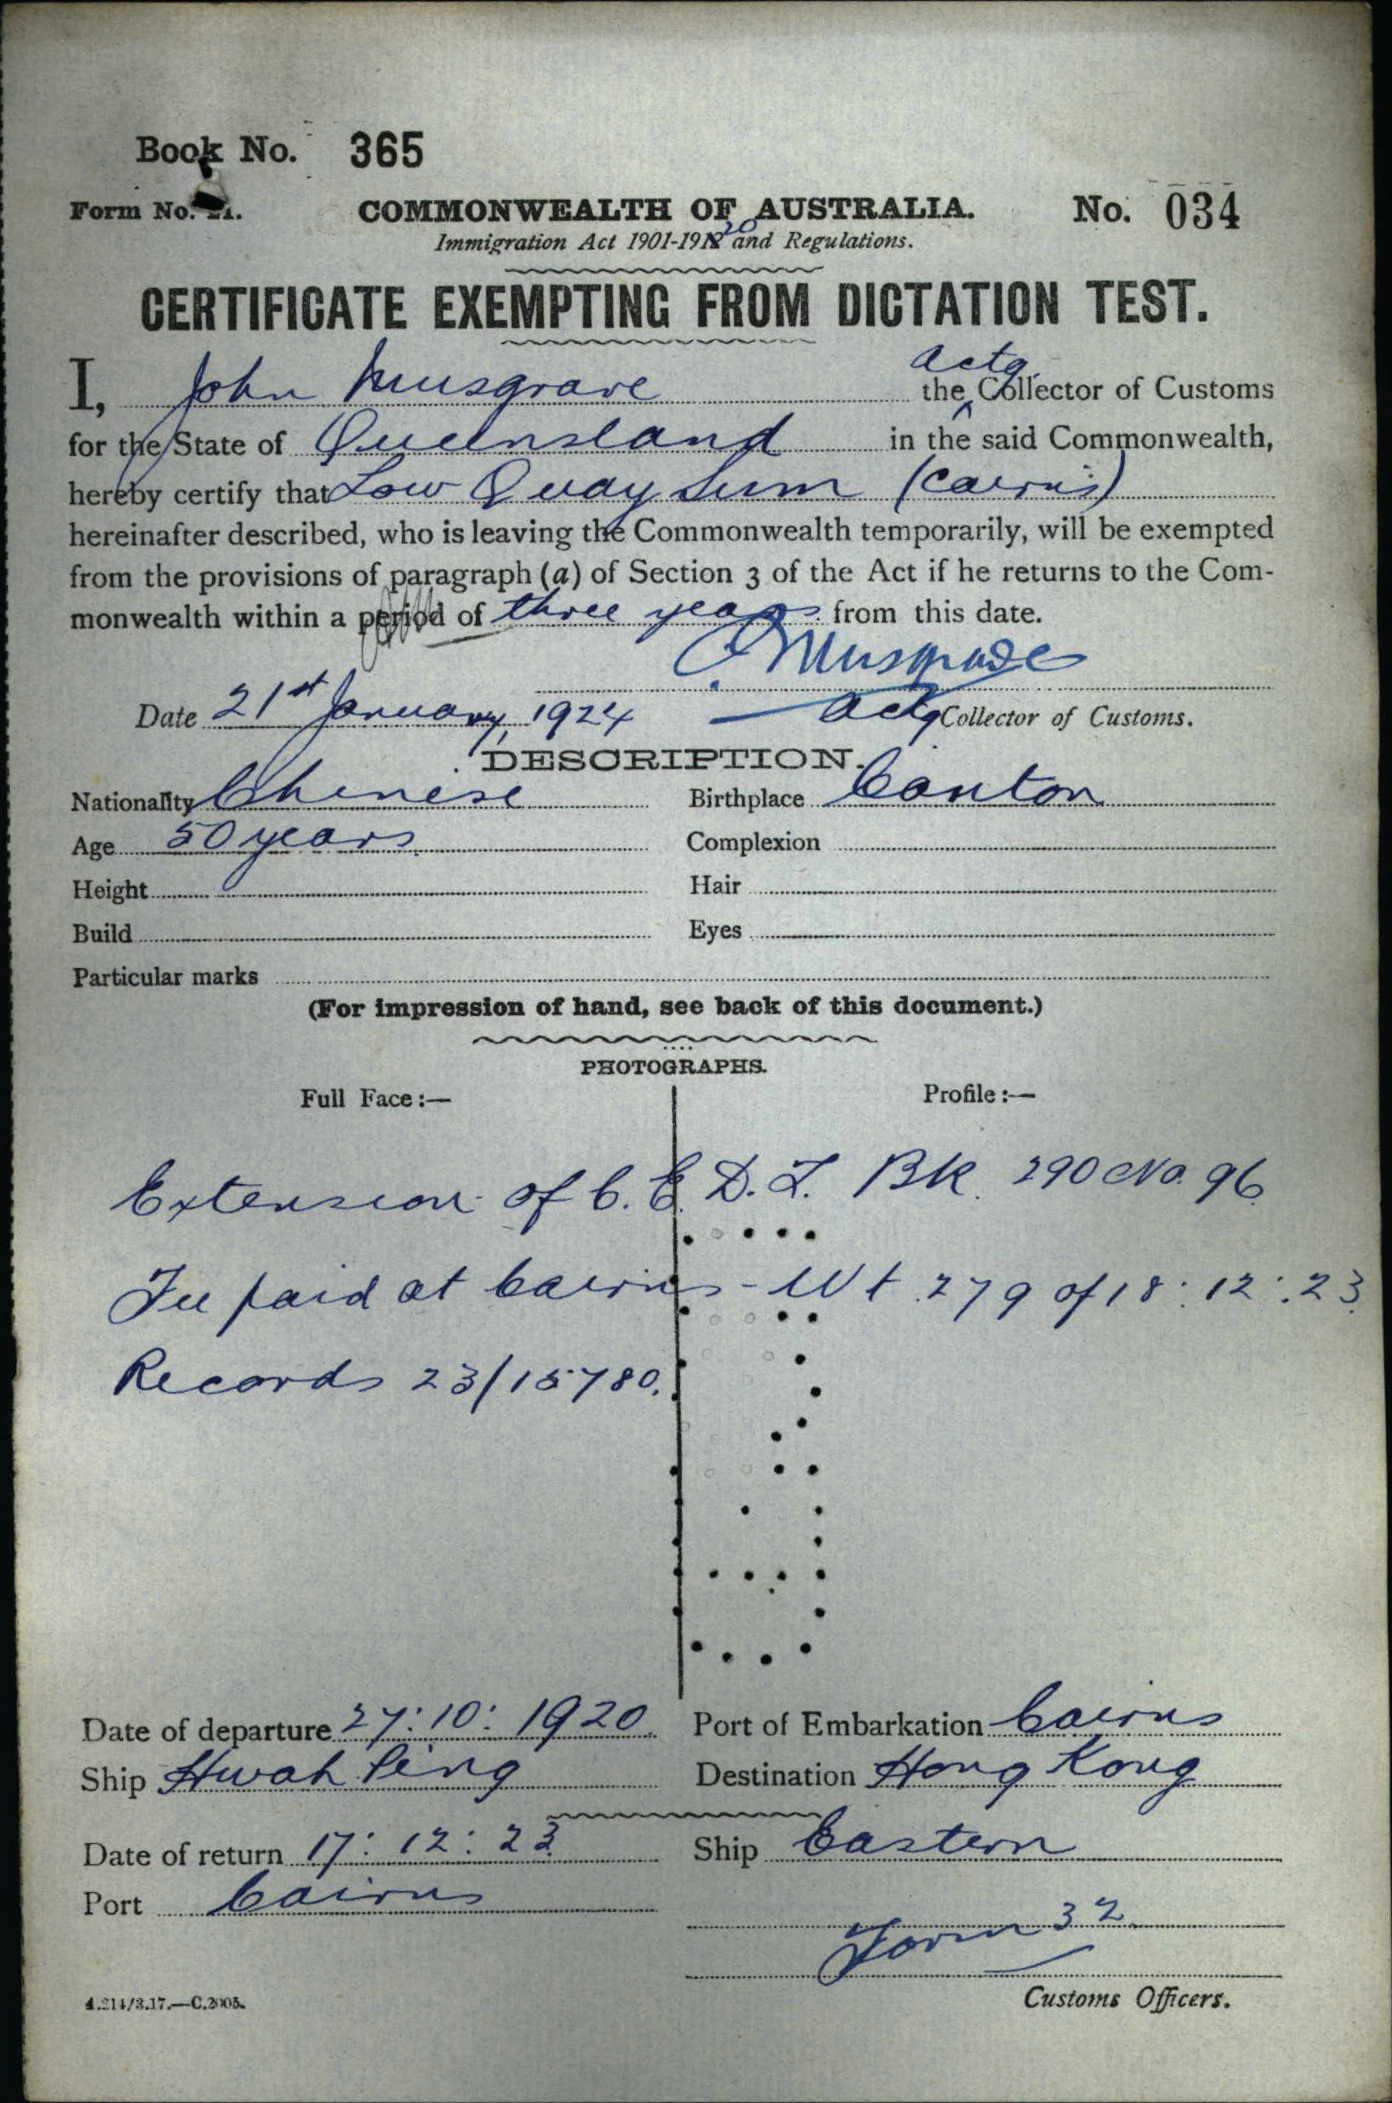 Book No. 365
Form No. 21.
COMMONWEALTH OF AUSTRALIA.
No. 034
Immigration Act 1901-1920 and Regulations.
CERTIFICATE EXEMPTING FROM DICTATION TEST.
I, John Musgrave the Actg. Collector of Customs
for the State of Queensland in the said Commonwealth,
hereby certify that Low Quay Sum (Cairns)
hereinafter described, who is leaving the Commonwealth temporarily, will be exempted
from the provisions of paragraph (a) of Section 3 of the Act if he returns to the Com-
monwealth within a period of three years from this date.
J Musgrave
Date 21st January, 1924 Actg Collector of Customs.
DESCRIPTION.
Nationality Chinese Birthplace Canton
Age 50 years Complexion
Height Hair
Build Eyes
Particular marks
(For impression of hand, see back of this document.)
PHOTOGRAPHS.
Full Face:— Profile:—
Extension of C.E.D.T. Bk. 290 No. 96
Fee paid at Cairns - Wt 279 of 18:12:23.
Records 23/15780.
Date of departure 27:10:1920. Port of Embarkation Cairns
Ship Hwah Ping Destination Hong Kong
Date of return 17:12:23 Ship Eastern
Port Cairns
Form 32.
4.214/3.17.—C.2005. Customs Officers.